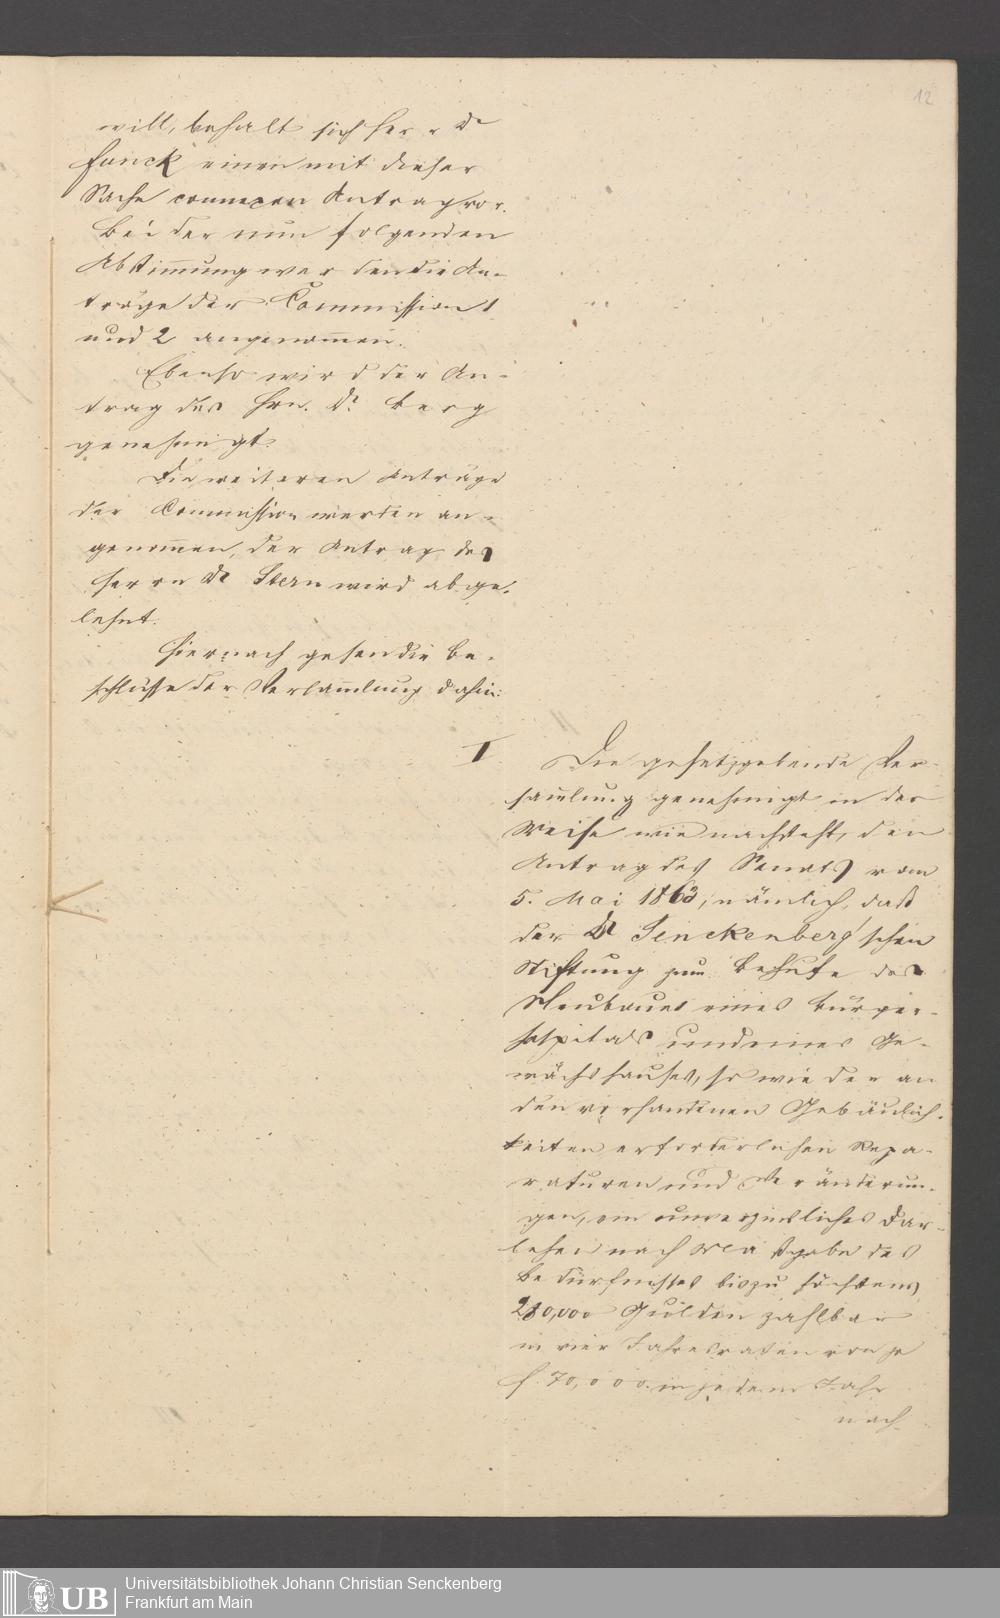 12
will, behält sich Herr Dr
Funck einen mit dieser
Sache connexen Antrag vor.
Bei der nun folgenden
Abstimmung werden die An-
träge der Commission 1
und 2 angenommen.
Ebenso wird der An-
trag des Hrn. Dr. Berg
genehmigt.
Die weiteren Anträge
der Commission werden an-
genommen, der Antrag des
Herrn Dr Stern wird abge-
lehnt.
Hiernach gehen die Be-
schlüsse der Versammlung dahin:
I. Die gesetzgebende Ver-
sammlung genehmigt in der
Weise wie nachsteht, den
Antrag des Senats vom
5. Mai 1863, nämlich, daß
der Dr Senckenberg'schen
Stiftung zum Behufe des
Neubaues eines Bürger-
hospitals und eines Ge-
wächshauses, so wie der an
den vorhandenen Gebäulich-
keiten erforderlichen Repa-
raturen und Veränderun-
gen, ein unverzinsliches Dar-
lehen nach Maßgabe des
Bedürfnisses bis zu höchstens
280,000 Gulden zahlbar
in vier Jahresraten von je
f. 70,000. in jedem Jahr
nach
UB
Universitätsbibliothek Johann Christian Senckenberg
Frankfurt am Main